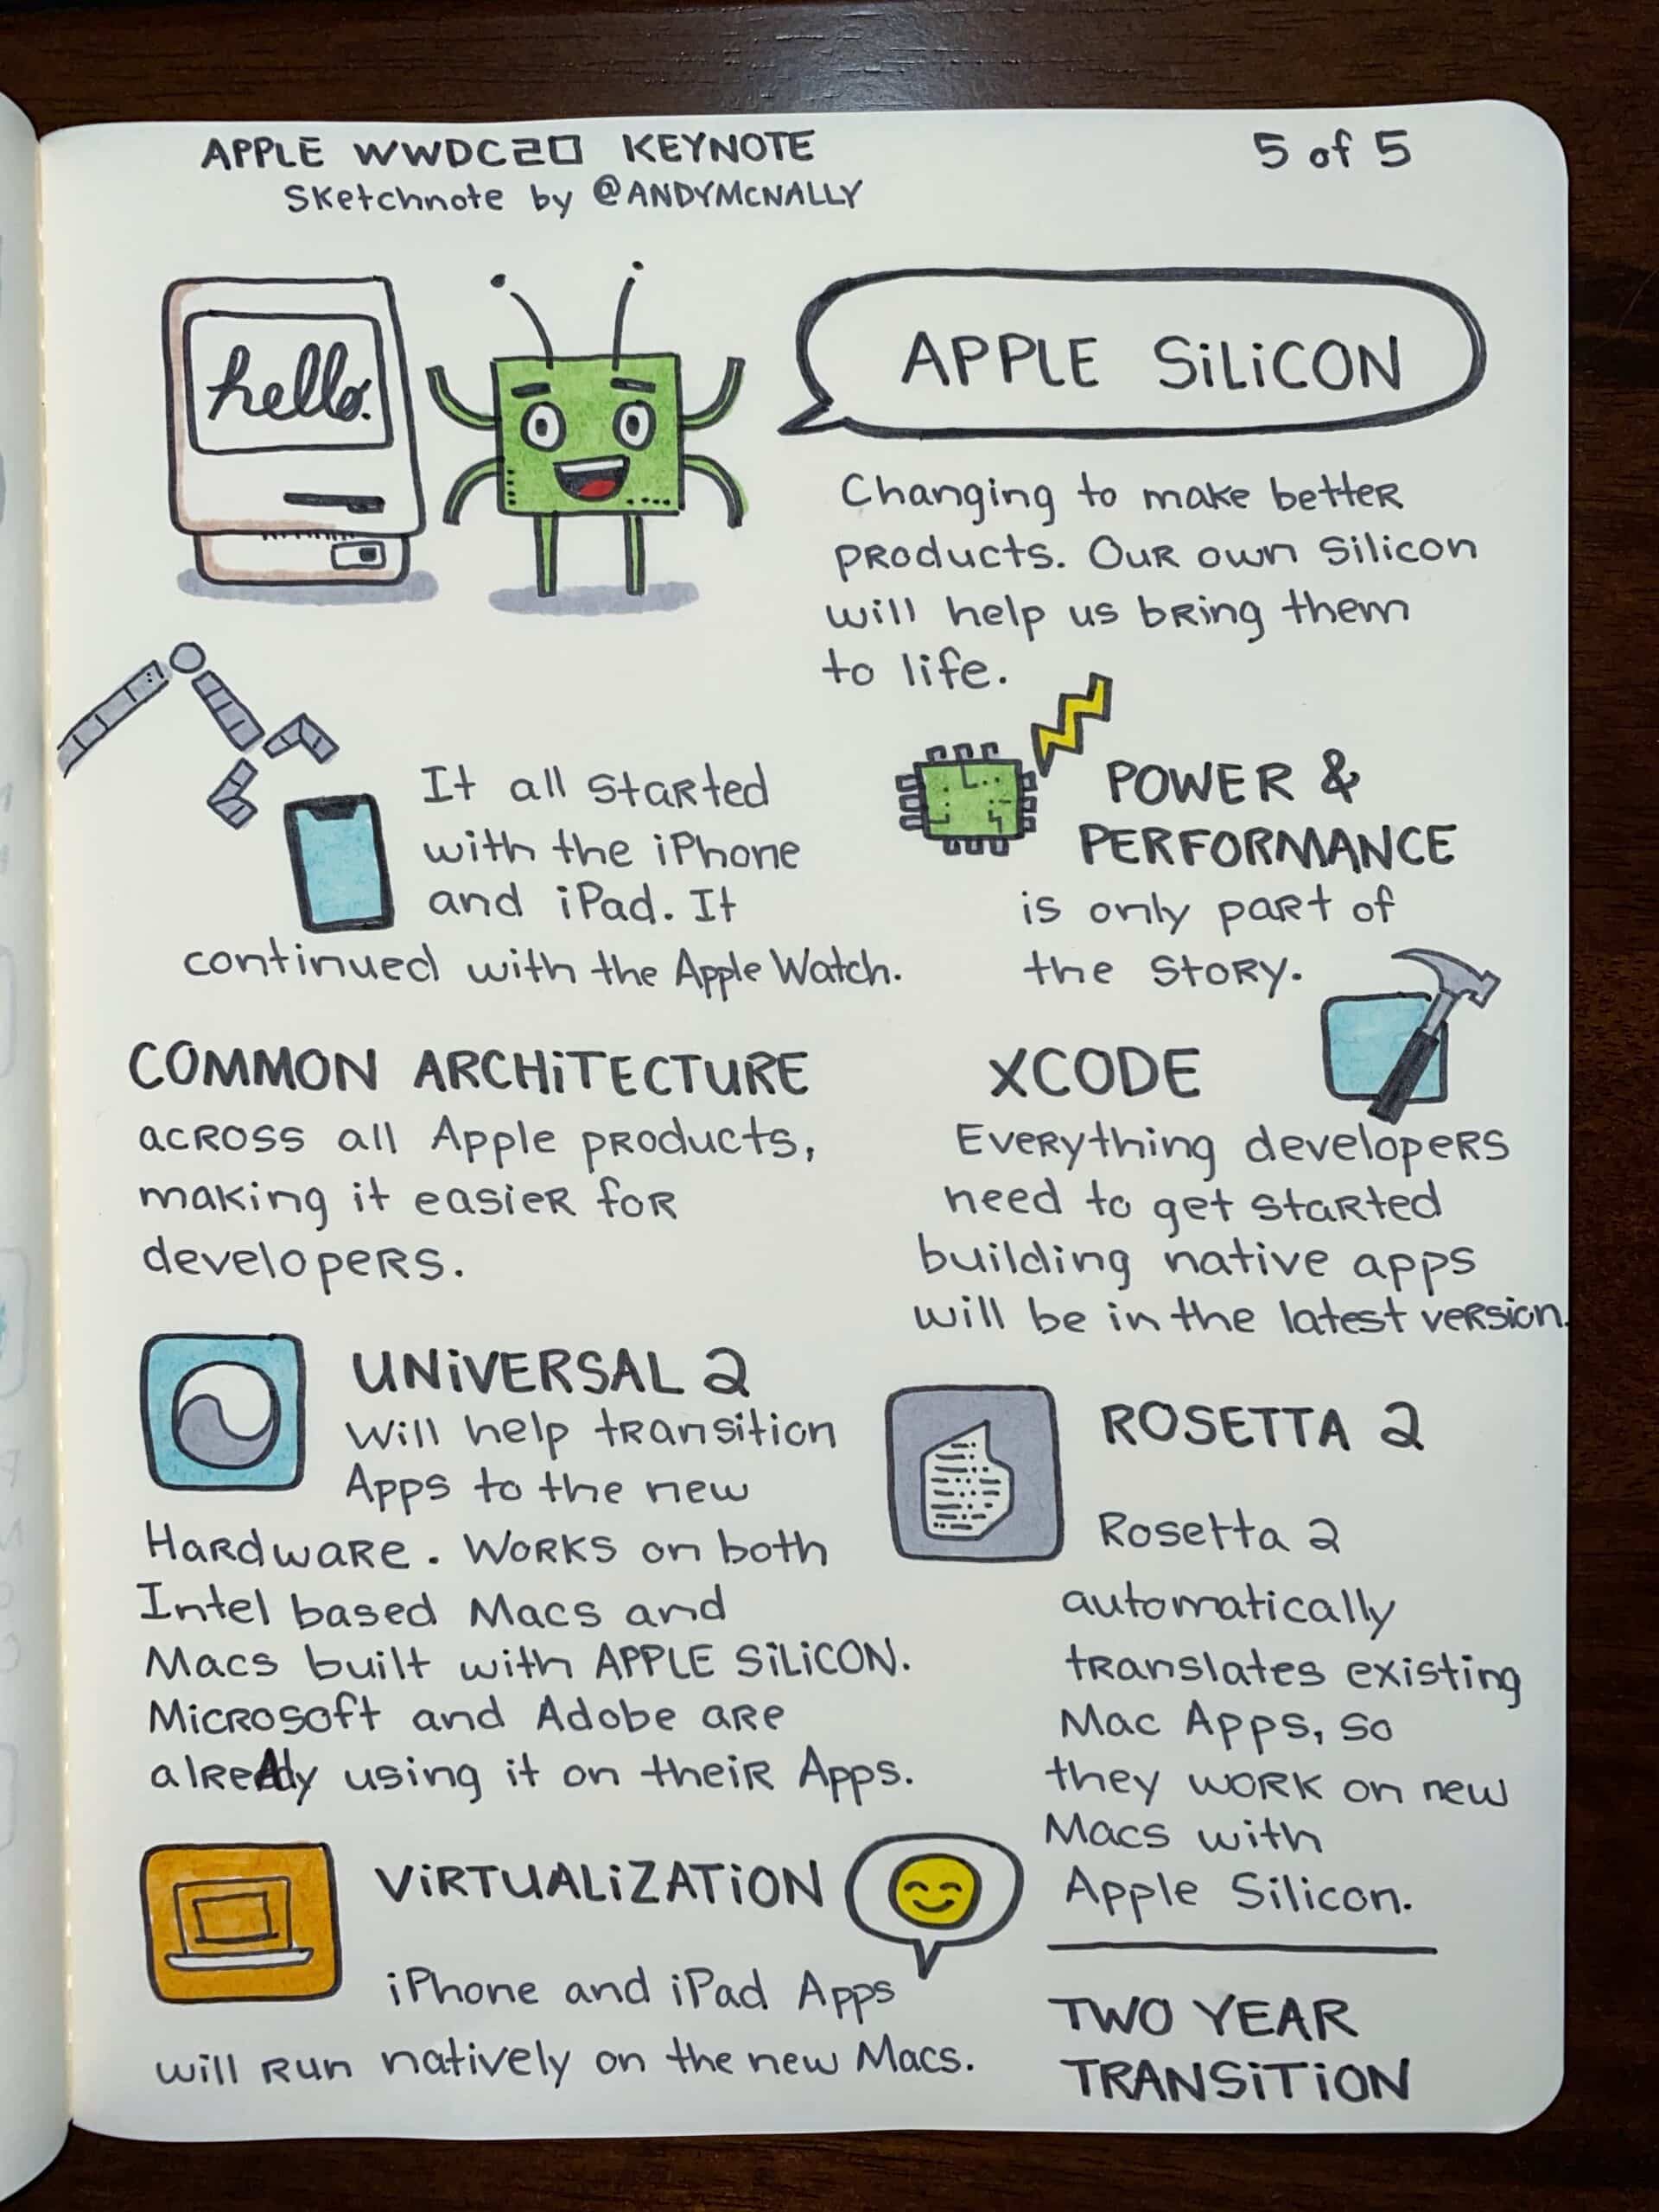 APPLE WWDC20 KEYNOTE
5 of 5
Sketchnote by @ANDYMCNALLY
hello.
APPLE SILICON
Changing to make better
products. Our own silicon
will help us bring them
to life.
It all started
with the iPhone
and iPad. It
continued with the Apple Watch.
POWER &
PERFORMANCE
is only part of
the story.
COMMON ARCHITECTURE
across all Apple products,
making it easier for
developers.
XCODE
Everything developers
need to get started
building native apps
will be in the latest version.
UNIVERSAL 2
Will help transition
Apps to the new
Hardware. Works on both
Intel based Macs and
Macs built with APPLE SILICON.
Microsoft and Adobe are
already using it on their Apps.
ROSETTA 2
Rosetta 2
automatically
translates existing
Mac Apps, so
they work on new
Macs with
Apple Silicon.
VIRTUALIZATION
iPhone and iPad Apps
will run natively on the new Macs.
TWO YEAR
TRANSITION